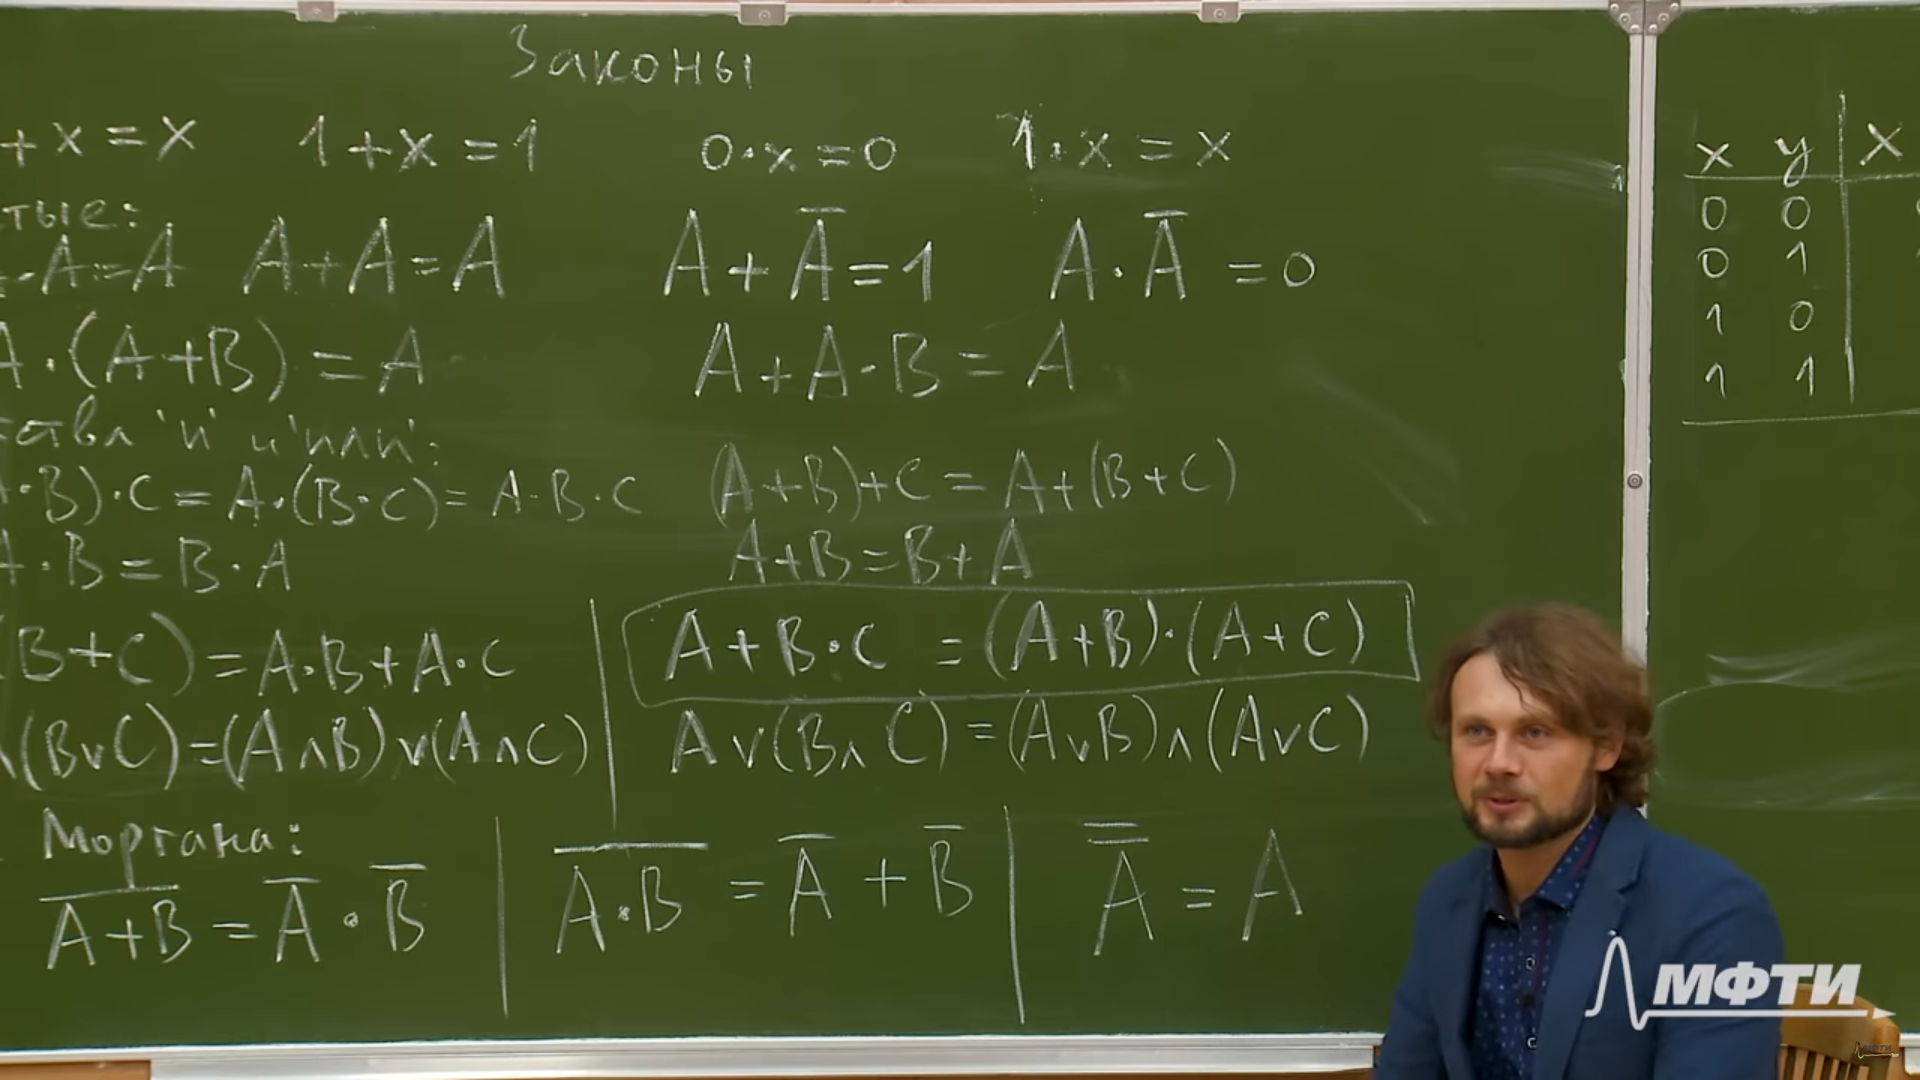 Законы
+ x = x 1 + x = 1 0 · x = 0 1 · x = x
тые:
· A = A A + A = A A + A̅ = 1 A · A̅ = 0
A · (A + B) = A A + A · B = A
'и' и 'или':
· B) · C = A · (B · C) = A · B · C (A + B) + C = A + (B + C)
A · B = B · A A + B = B + A
(B + C) = A · B + A · C A + B · C = (A + B) · (A + C)
∧ (B ∨ C) = (A ∧ B) ∨ (A ∧ C) A ∨ (B ∧ C) = (A ∨ B) ∧ (A ∨ C)
Моргана:
A̅ ̅+̅ ̅B̅ = A̅ · B̅ A̅ ̅·̅ ̅B̅ = A̅ + B̅ A̿ = A
x y x
0 0
0 1
1 0
1 1
МФТИ